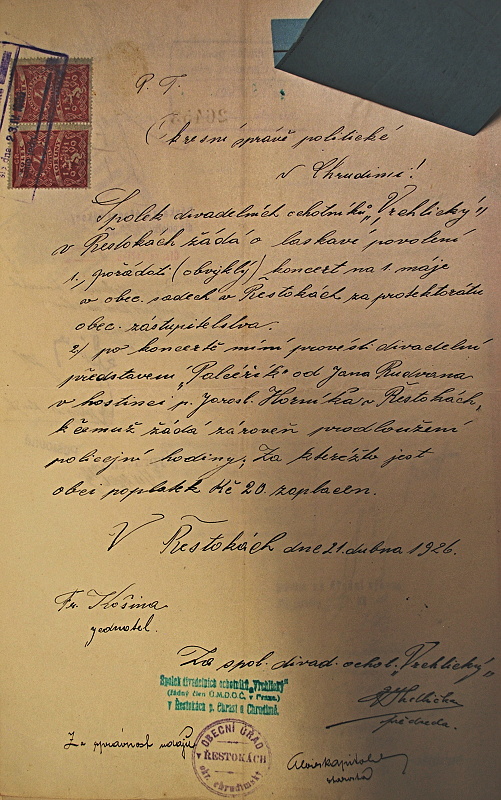 P. T.
Okresní správě politické
v Chrudimi!
Spolek divadelních ochotníků „Vrchlický"
v Řestokách žádá o laskavé povolení
1., pořádati (obvyklý) koncert na 1. máje
v obec. sadech v Řestokách za protektorátu
obec. zástupitelstva.
2) po koncertě míní provésti divadelní
představení „Palčeřík" od Jana Rudvana
v hostinci p. Jarosl. Horníka v Řestokách,
k čemuž žádá zároveň prodloužení
policejní hodiny; Za kterežto jest
obci poplatek Kč 20 zaplacen.
V Řestokách dne 21. dubna 1926.
Fr. Košina
jednatel.
Za spol. divad. ochot. „Vrchlický"
Spolek divadelních ochotníků „Vrchlický"
(řádný člen Ú.M.D.O.Č. v Praze)
v Řestokách p. Chrast u Chrudimě.
předseda.
Za správnost údajů
OBECNÍ ÚŘAD
v ŘESTOKÁCH
okr. chrudimský
starosta